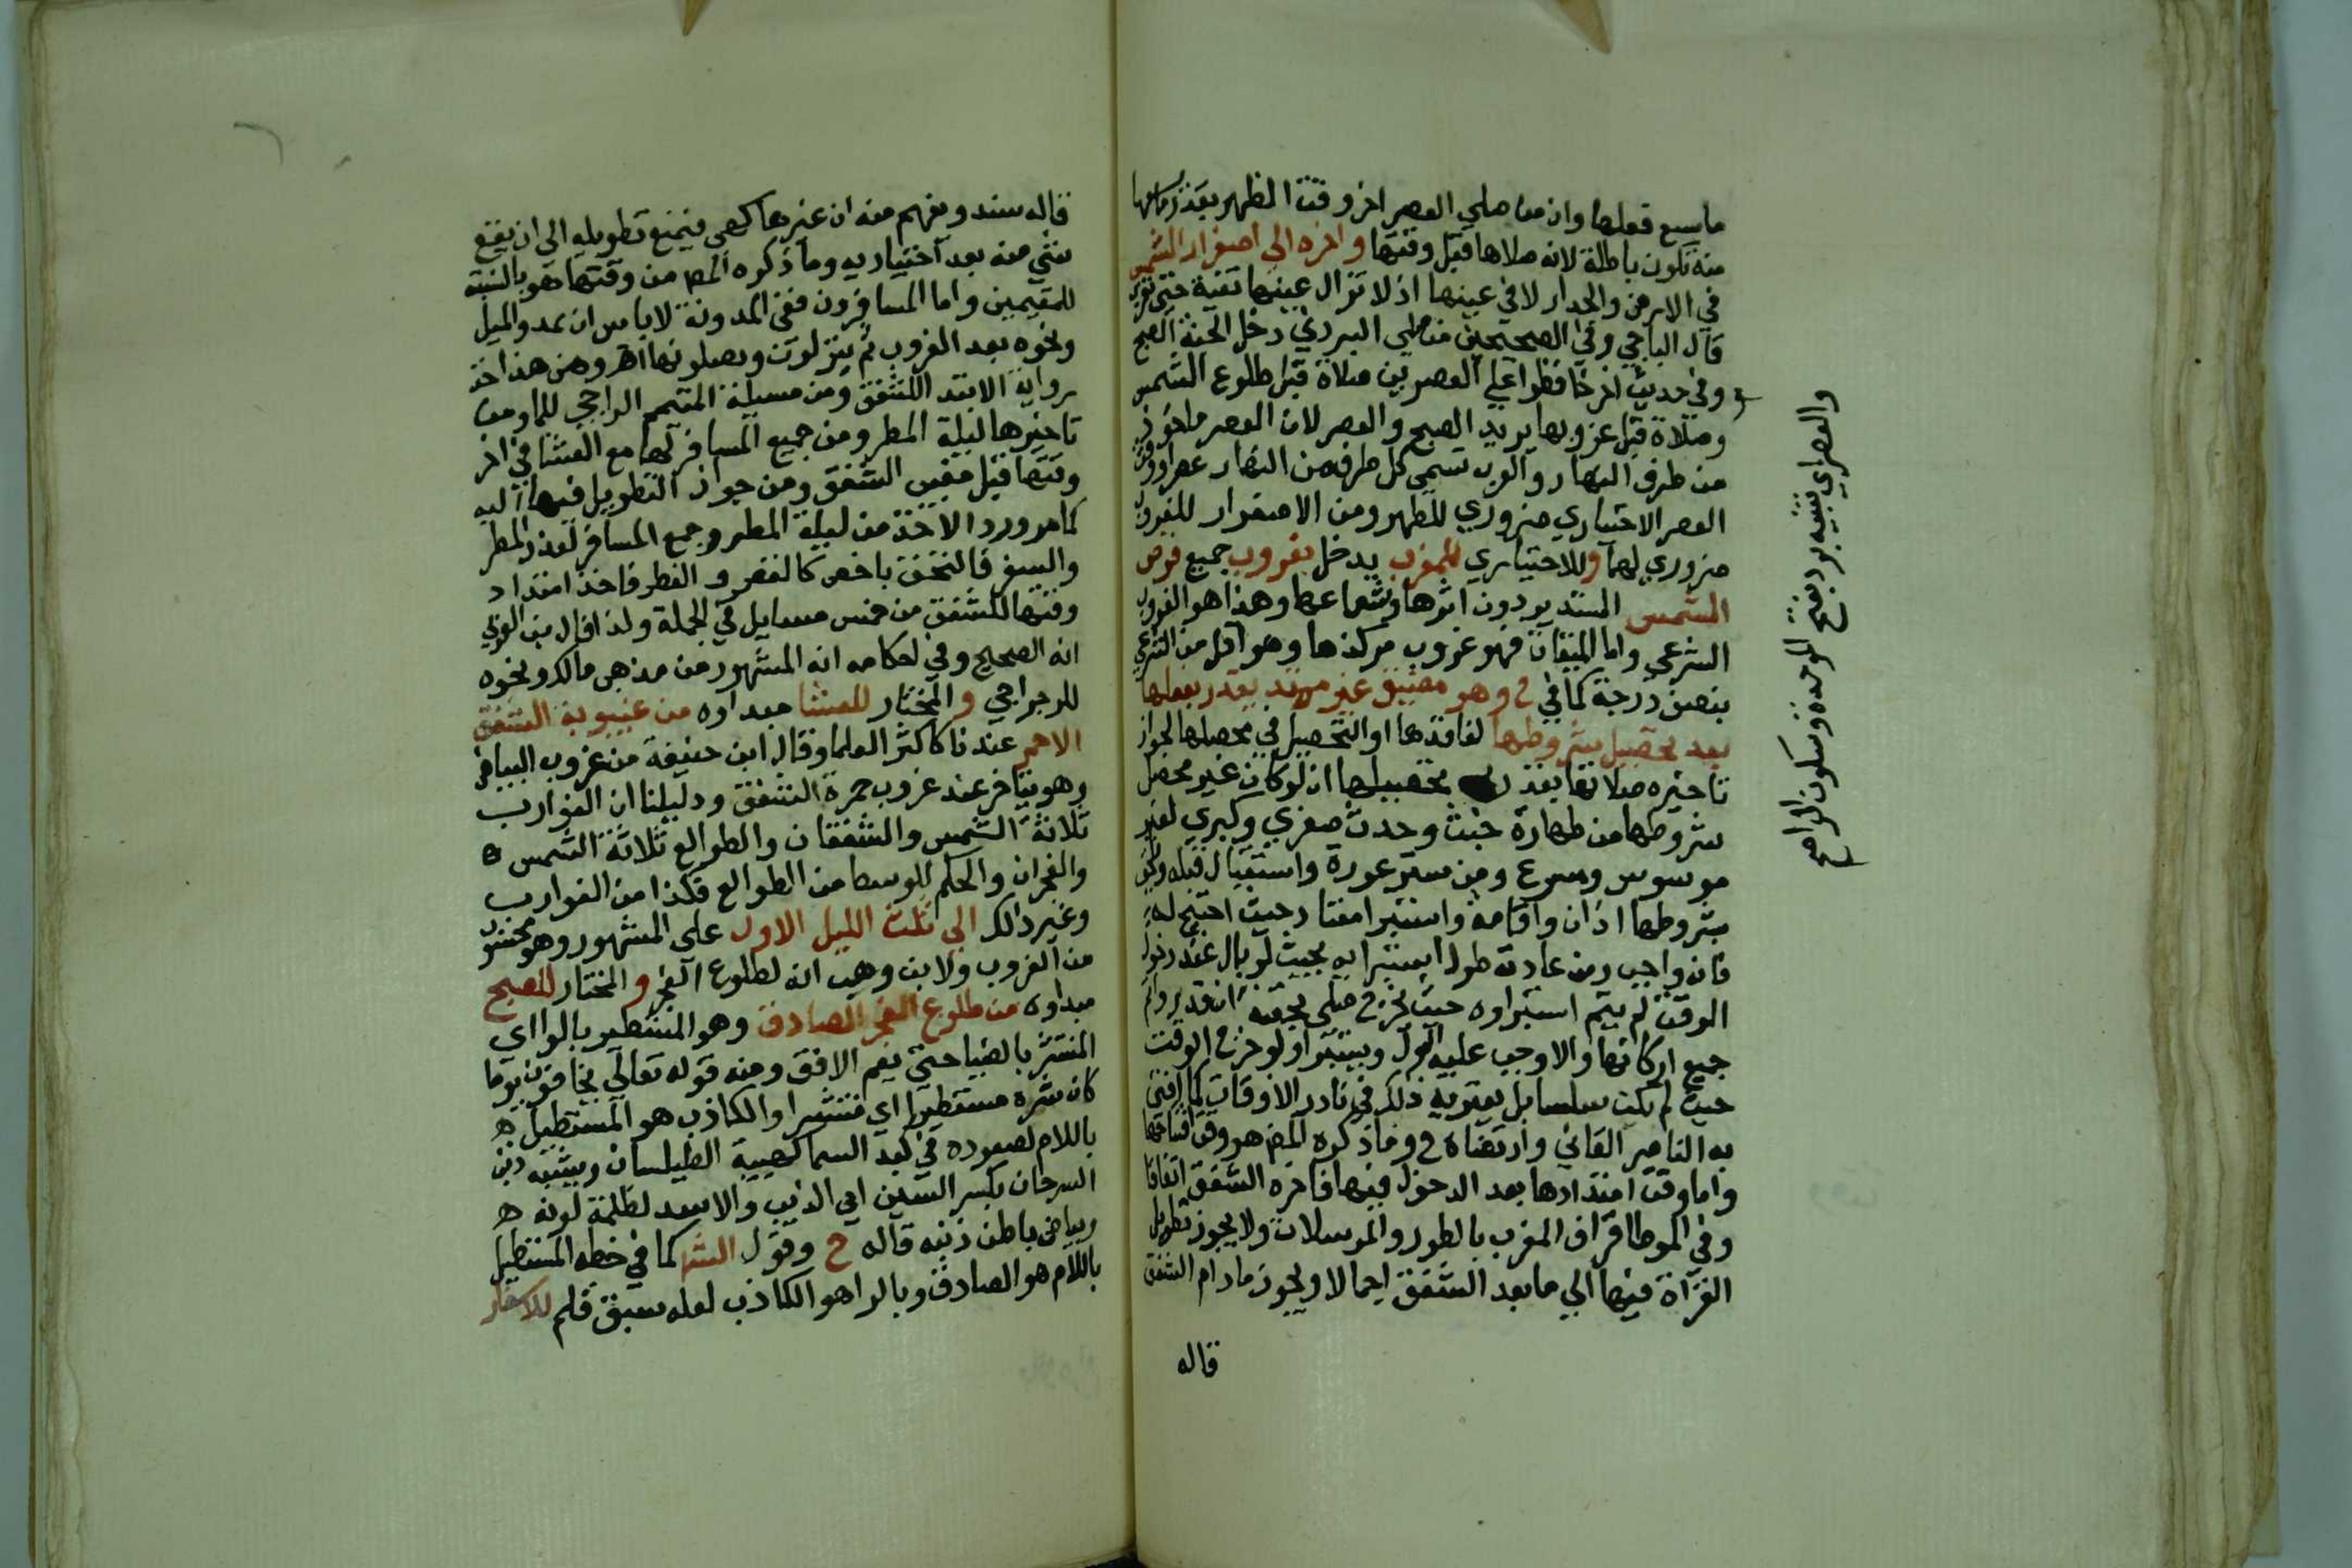 ما يسع فعلها وان من صلي العصر اخر وقت الظهر بقدر ما يسعها
منه تكون باطلة لانه صلاها قبل وقتها واخره الي اصفرار الشمس
في الارض والجدار لا في عينها اذ لا تزال عينها نقية حتي تغرب
قال الباجي وفي الصحيحين من صلي البردين دخل الجنة الصبح
وفي حديث اخر حافظوا علي العصرين صلاة قبل طلوع الشمس
وصلاة قبل غروبها يريد الصبح والعصر لان العصر ماخوذ
من طرف النهار والعرب تسمي كل طرف من النهار عصرا ووقت
العصر الاختياري ضروري للظهر ومن الاصفرار للغروب
ضروري لهما وللاختياري للمغرب يدخل بغروب جميع قرص
الشمس المستدير دون اثرها وشعاعها وهذا هو الغروب
الشرعي واما الميقات فهو غروب مركزها وهو اقل من الشرعي
بنصف درجة كما في ح وهو مضيق غير ممتد بقدر بفعلها
بعد تحصيل شروطها لفاقدها او التحصيل في محصلها لجواز
تاخيره صلاتها بقدر تحصيلها ان لو كان غير محصل
شروطها من طهارة خبث وحدث صغري وكبري لغير
موسوس ومسرع ومن ستر عورة واستقبال قبله
شروطها اذان واقامة واستبرا معتاد حيث احتيج له
فانه واجب ومن عادته طول استبرايه بحيث لو بال عند دخول
الوقت لم يتم استبراوه حيث يخرج صلي بحقنه ان قدر
جميع اركانها والا وجب عليه البول ويستبرا ولو خرج الوقت
حيث لم يكن سلسا بل يعتريه ذلك في نادر الاوقات كما افتي
به الناصر اللقاني وارتضاه ح وما ذكره المص هو وقت افتتاحها
واما وقت امتدادها بعد الدخول فيها فاخره الشفق اتفاقا
وفي الموطا قراة المغرب بالطور والمرسلات ولا يجوز تطويل
القراة فيها الي ما بعد الشفق اجمالا ويجوز ما دام الشفق
قاله
والعصران تثنيه برد بفتح الموحدة وسكون الراء صح
قاله سند ويفهم منه ان غيرها كهي فيمنع تطويله الي ان يقع
شي منه بعد اختياريه وما ذكره المص من وقتها هو بالنسبة
للمقيمين واما المسافرون ففي المدونة لا باس ان يمد والميل
ونحوه بعد الغروب ثم ينزلون ويصلونها اهـ وهن هذا اخذ
رواية الامتداد للشفق ومن مسيلة المتيمم الراجي للماء ومن
تاخيرها ليلة المطر ومن جميع المسافر لها مع العشا في اخر
وقتها قبل مغيب الشفق ومن جواز التطويل فيها اليه
كما مر ورد الاخذ من ليلة المطر وجمع المسافر لعذر المطر
والسفر فالتحق باخص كالقصر والفطر فاخذ امتداد
وقتها للشفق من خمس مسايل في الجملة ولذا قال بن العربي
انه الصحيح وفي احكامه انه المشهور من مذهب مالك ونحوه
للرجراجي والمختار للعشا مبداوه من غيبوبة الشفق
الاحمر عندنا كاكثر العلما وقال ابن حنيفة من غروب البياض
وهو يتاخر عند غروب حمرة الشفق ودليلنا ان الغوارب
ثلاثة الشمس والشفقان والطوالع ثلاثة الشمس
والفجران والحكم للوسط من الطوالع فكذا من الغوارب
وغير ذالك الي ثلث الليل الاول علي المشهور وهو محسوب
من الغروب ولابن وهب انه لطلوع الفجر والمختار للصبح
مبداوه من طلوع الفجر الصادق وهو المستطير بالراء اي
المنتشر بالضيا حتي يعم الافق ومنه قوله تعالي يخافون يوما
كان شره مستطيرا اي منتشرا والكاذب هو المستطيل
باللام لصعوده في كبد السما كهيئة الطيلسان ويشبه ذنب
السرحان بكسر السين اي الذيب والاسد لظلمة لونه
وبياض باطن ذنبه قاله ح وقول الش كما في خطه المستطيل
باللام هو الصادق وبالراء هو الكاذب لعله سبق قلم للاسفار